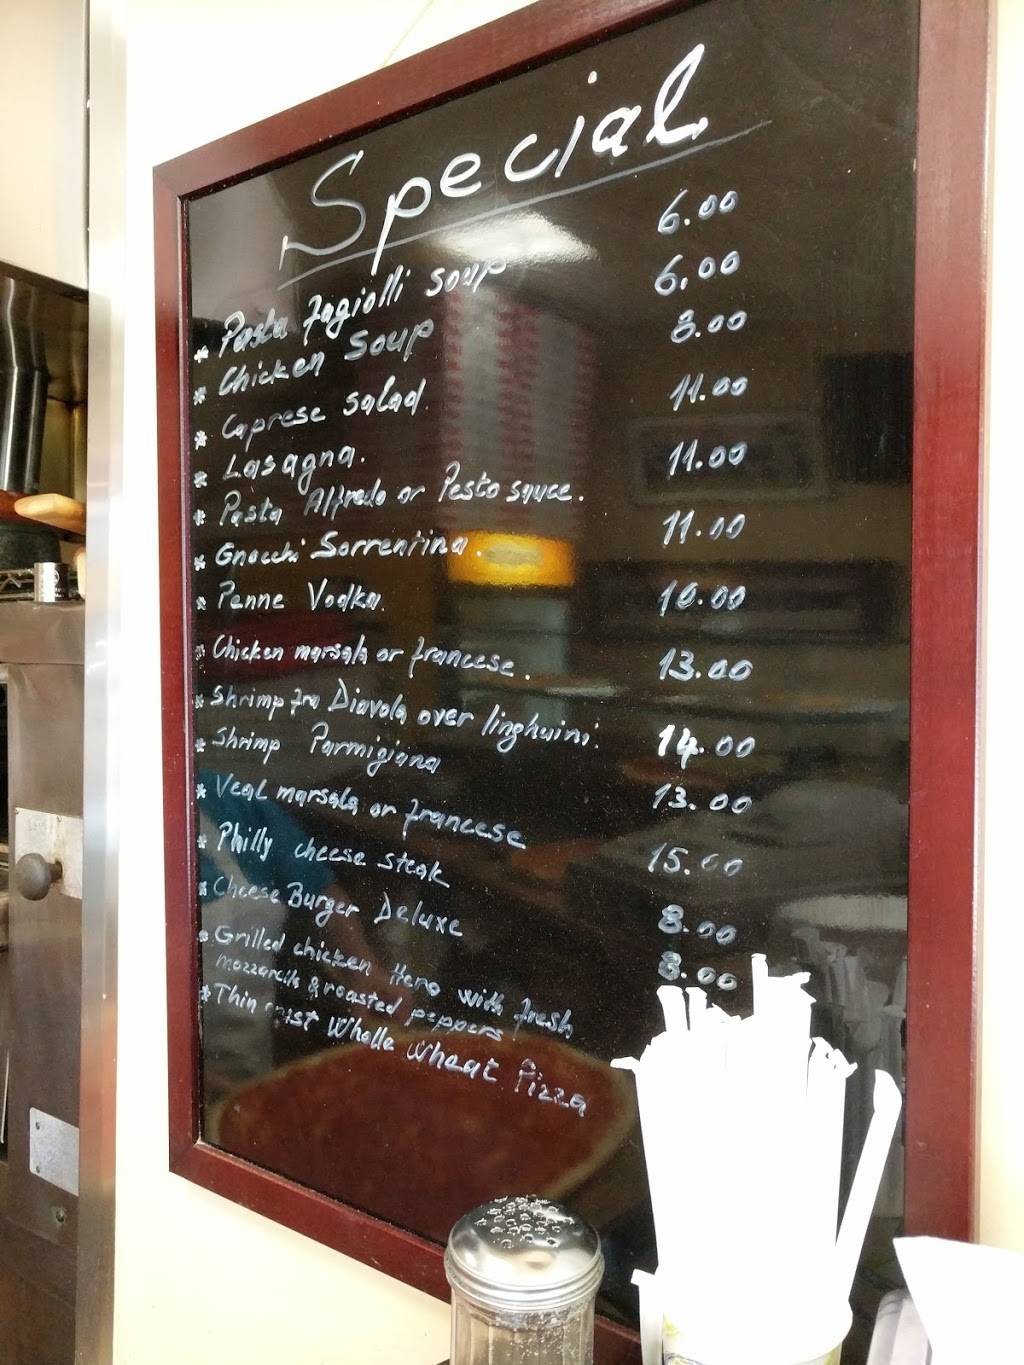 Special
* Pasta Fagiolli Soup 6.00
* Chicken Soup 6.00
* Caprese Salad. 8.00
* Lasagna. 11.00
* Pasta Alfredo or Pesto sauce. 11.00
* Gnocchi Sorrentina. 11.00
* Penne Vodka. 10.00
* Chicken marsala or francese. 13.00
* Shrimp fra Diavola over linghuini. 14.00
* Shrimp Parmigiana 13.00
* Veal marsala or francese 15.00
* Philly cheese steak 8.00
* Cheese Burger Deluxe 8.00
* Grilled chicken Hero with fresh
mozzarella & roasted peppers
* Thin crust Wholle Wheat Pizza